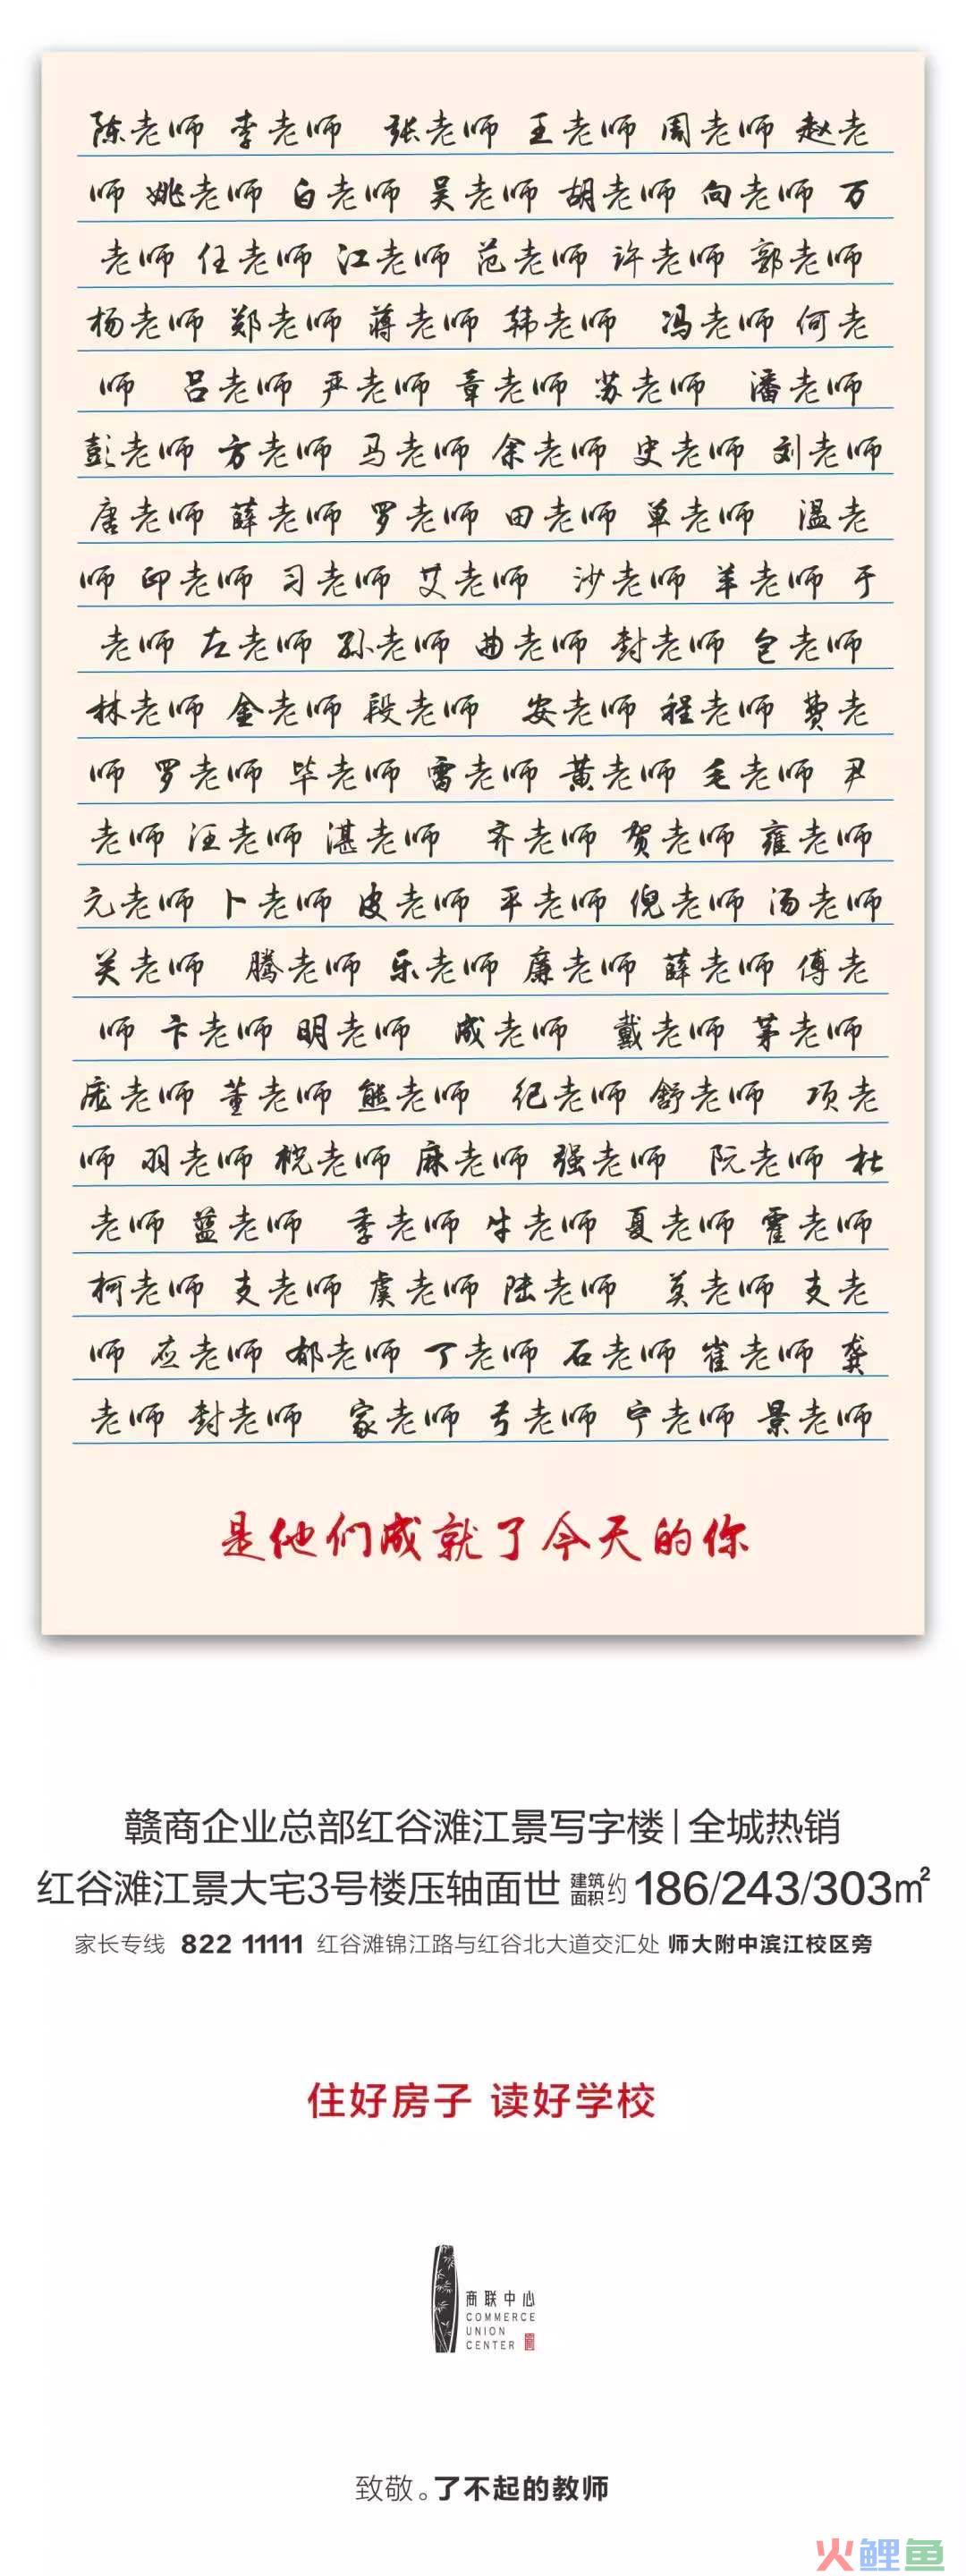 陈老师 李老师 张老师 王老师 周老师 赵老
师 姚老师 白老师 吴老师 胡老师 向老师 万
老师 任老师 江老师 范老师 许老师 郭老师
杨老师 郑老师 蒋老师 韩老师 冯老师 何老
师 吕老师 严老师 章老师 苏老师 潘老师
彭老师 方老师 马老师 余老师 史老师 刘老师
唐老师 薛老师 罗老师 田老师 单老师 温老
师 印老师 习老师 艾老师 沙老师 羊老师 于
老师 左老师 孙老师 曲老师 封老师 包老师
林老师 金老师 段老师 安老师 程老师 费老
师 罗老师 毕老师 雷老师 黄老师 毛老师 尹
老师 汪老师 湛老师 齐老师 贺老师 雍老师
元老师 卜老师 皮老师 平老师 倪老师 汤老师
关老师 腾老师 乐老师 廉老师 薛老师 傅老
师 卞老师 明老师 成老师 戴老师 茅老师
庞老师 董老师 熊老师 纪老师 舒老师 项老
师 羽老师 祝老师 麻老师 强老师 阮老师 杜
老师 蓝老师 季老师 牛老师 夏老师 霍老师
柯老师 支老师 虞老师 陆老师 莫老师 支老
师 应老师 郁老师 丁老师 石老师 崔老师 龚
老师 封老师 家老师 弓老师 宁老师 景老师
是他们成就了今天的你
赣商企业总部红谷滩江景写字楼|全城热销
红谷滩江景大宅3号楼压轴面世 建筑面积约186/243/303㎡
家长专线 822 11111 红谷滩锦江路与红谷北大道交汇处 师大附中滨江校区旁
住好房子 读好学校
商联中心
COMMERCE
UNION
CENTER
致敬。了不起的教师
火鲤鱼